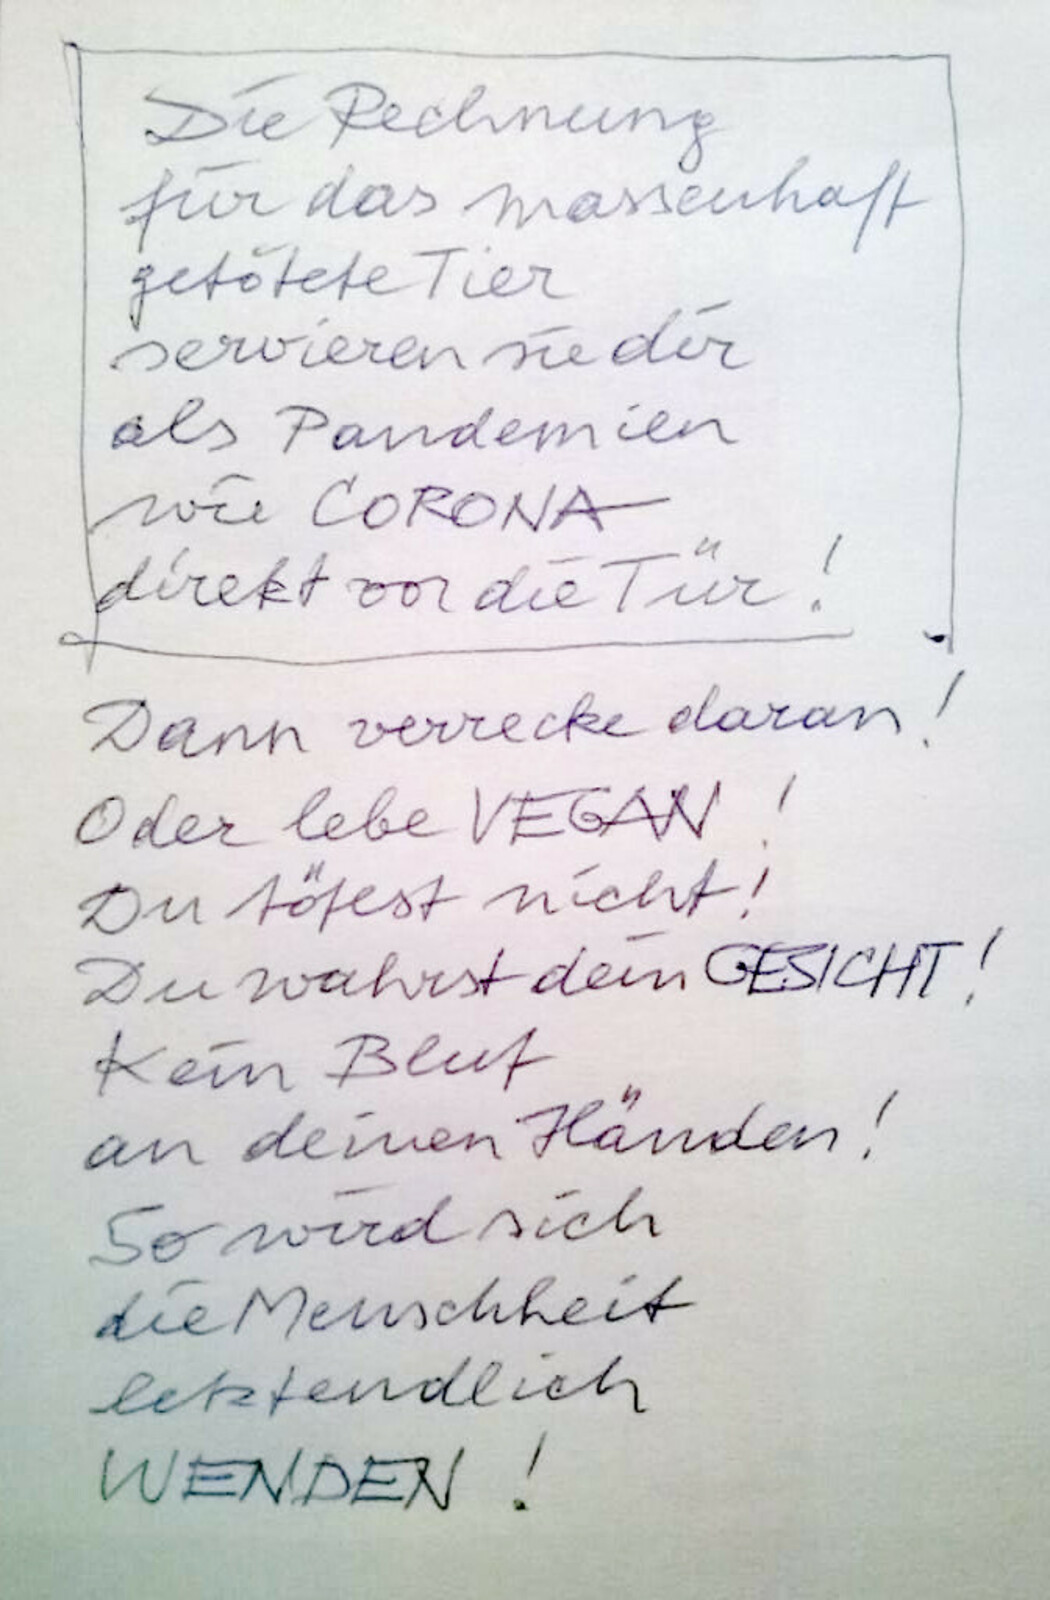 Die Rechnung
für das massenhaft
getötete Tier
servieren sie dir
als Pandemien
wie CORONA
direkt vor die Tür!
Dann verrecke daran!
Oder lebe VEGAN!
Du tötest nicht!
Du wahrst dein GESICHT!
Kein Blut
an deinen Händen!
So wird sich
die Menschheit
letztendlich
WENDEN!